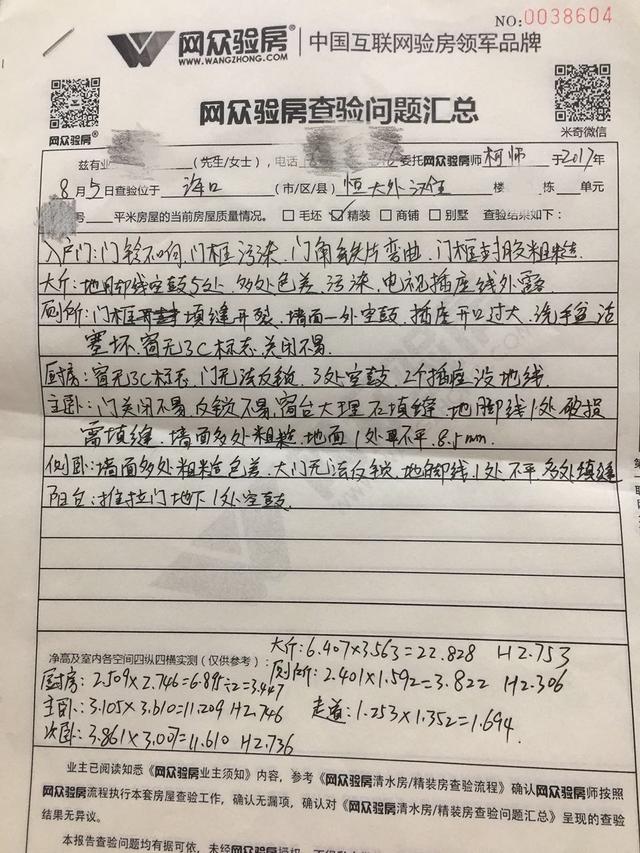 NO:0038604
网众验房® 中国互联网验房领军品牌
WWW.WANGZHONG.COM
网众验房® 网众验房查验问题汇总 米奇微信
兹有 (先生/女士),电话 委托网众验房师 柯师 于2017年
8月5日查验位于 海口 (市/区/县) 恒大外滩 楼 栋 单元
号 平米房屋的当前房屋质量情况。 毛坯 精装 商铺 别墅 查验结果如下:
入户门:门铃不响,门框污染,门角多片弯曲,门框封胶粗糙
大厅:地脚线空鼓5处,多处色差,污染,电视插座线外露
厕所:门框填缝开裂,墙面一处空鼓,插座开口过大,洗手盆活
塞坏,窗无3C标志,关闭不易
厨房:窗无3C标志,门无法反锁,3处空鼓,2个插座没地线
主卧:门关闭不易,反锁不易,窗台大理石填缝,地脚线1处破损
需填缝,墙面多处粗糙,地面1处不平8.5mm
侧卧:墙面多处粗糙色差,大门无法反锁,地脚线1处不平,多处填缝
阳台:推拉门地下1处空鼓
净高及室内各空间四纵四横实测(仅供参考): 大厅:6.407×3.563=22.828 H2.753
厨房:2.509×2.746=6.895÷2=3.447 厕所:2.401×1.592=3.822 H2.306
主卧:3.105×3.610=11.209 H2.746 走道:1.253×1.352=1.694
次卧:3.861×3.007=11.610 H2.736
业主已阅读知悉《网众验房业主须知》内容,参考《网众验房清水房/精装房查验流程》确认网众验房师按照
网众验房流程执行本套房屋查验工作,确认无漏项,确认对《网众验房清水房/精装房查验问题汇总》呈现的查验
结果无异议。
本报告查验问题均有据可依,未经网众验房授权,